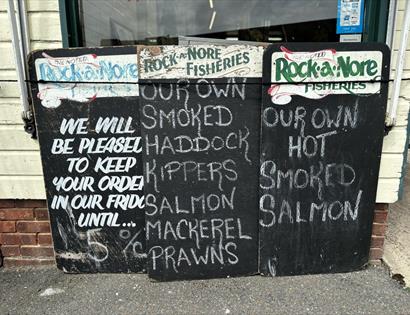 THE NOTED
ROCK-A-NORE
FISHERIES
WE WILL
BE PLEASED
TO KEEP
YOUR ORDER
IN OUR FRIDGE
UNTIL...
5
ROCK-A-NORE
FISHERIES
OUR OWN
SMOKED
HADDOCK
KIPPERS
SALMON
MACKEREL
PRAWNS
THE NOTED
ROCK-A-NORE
FISHERIES
OUR OWN
HOT
SMOKED
SALMON